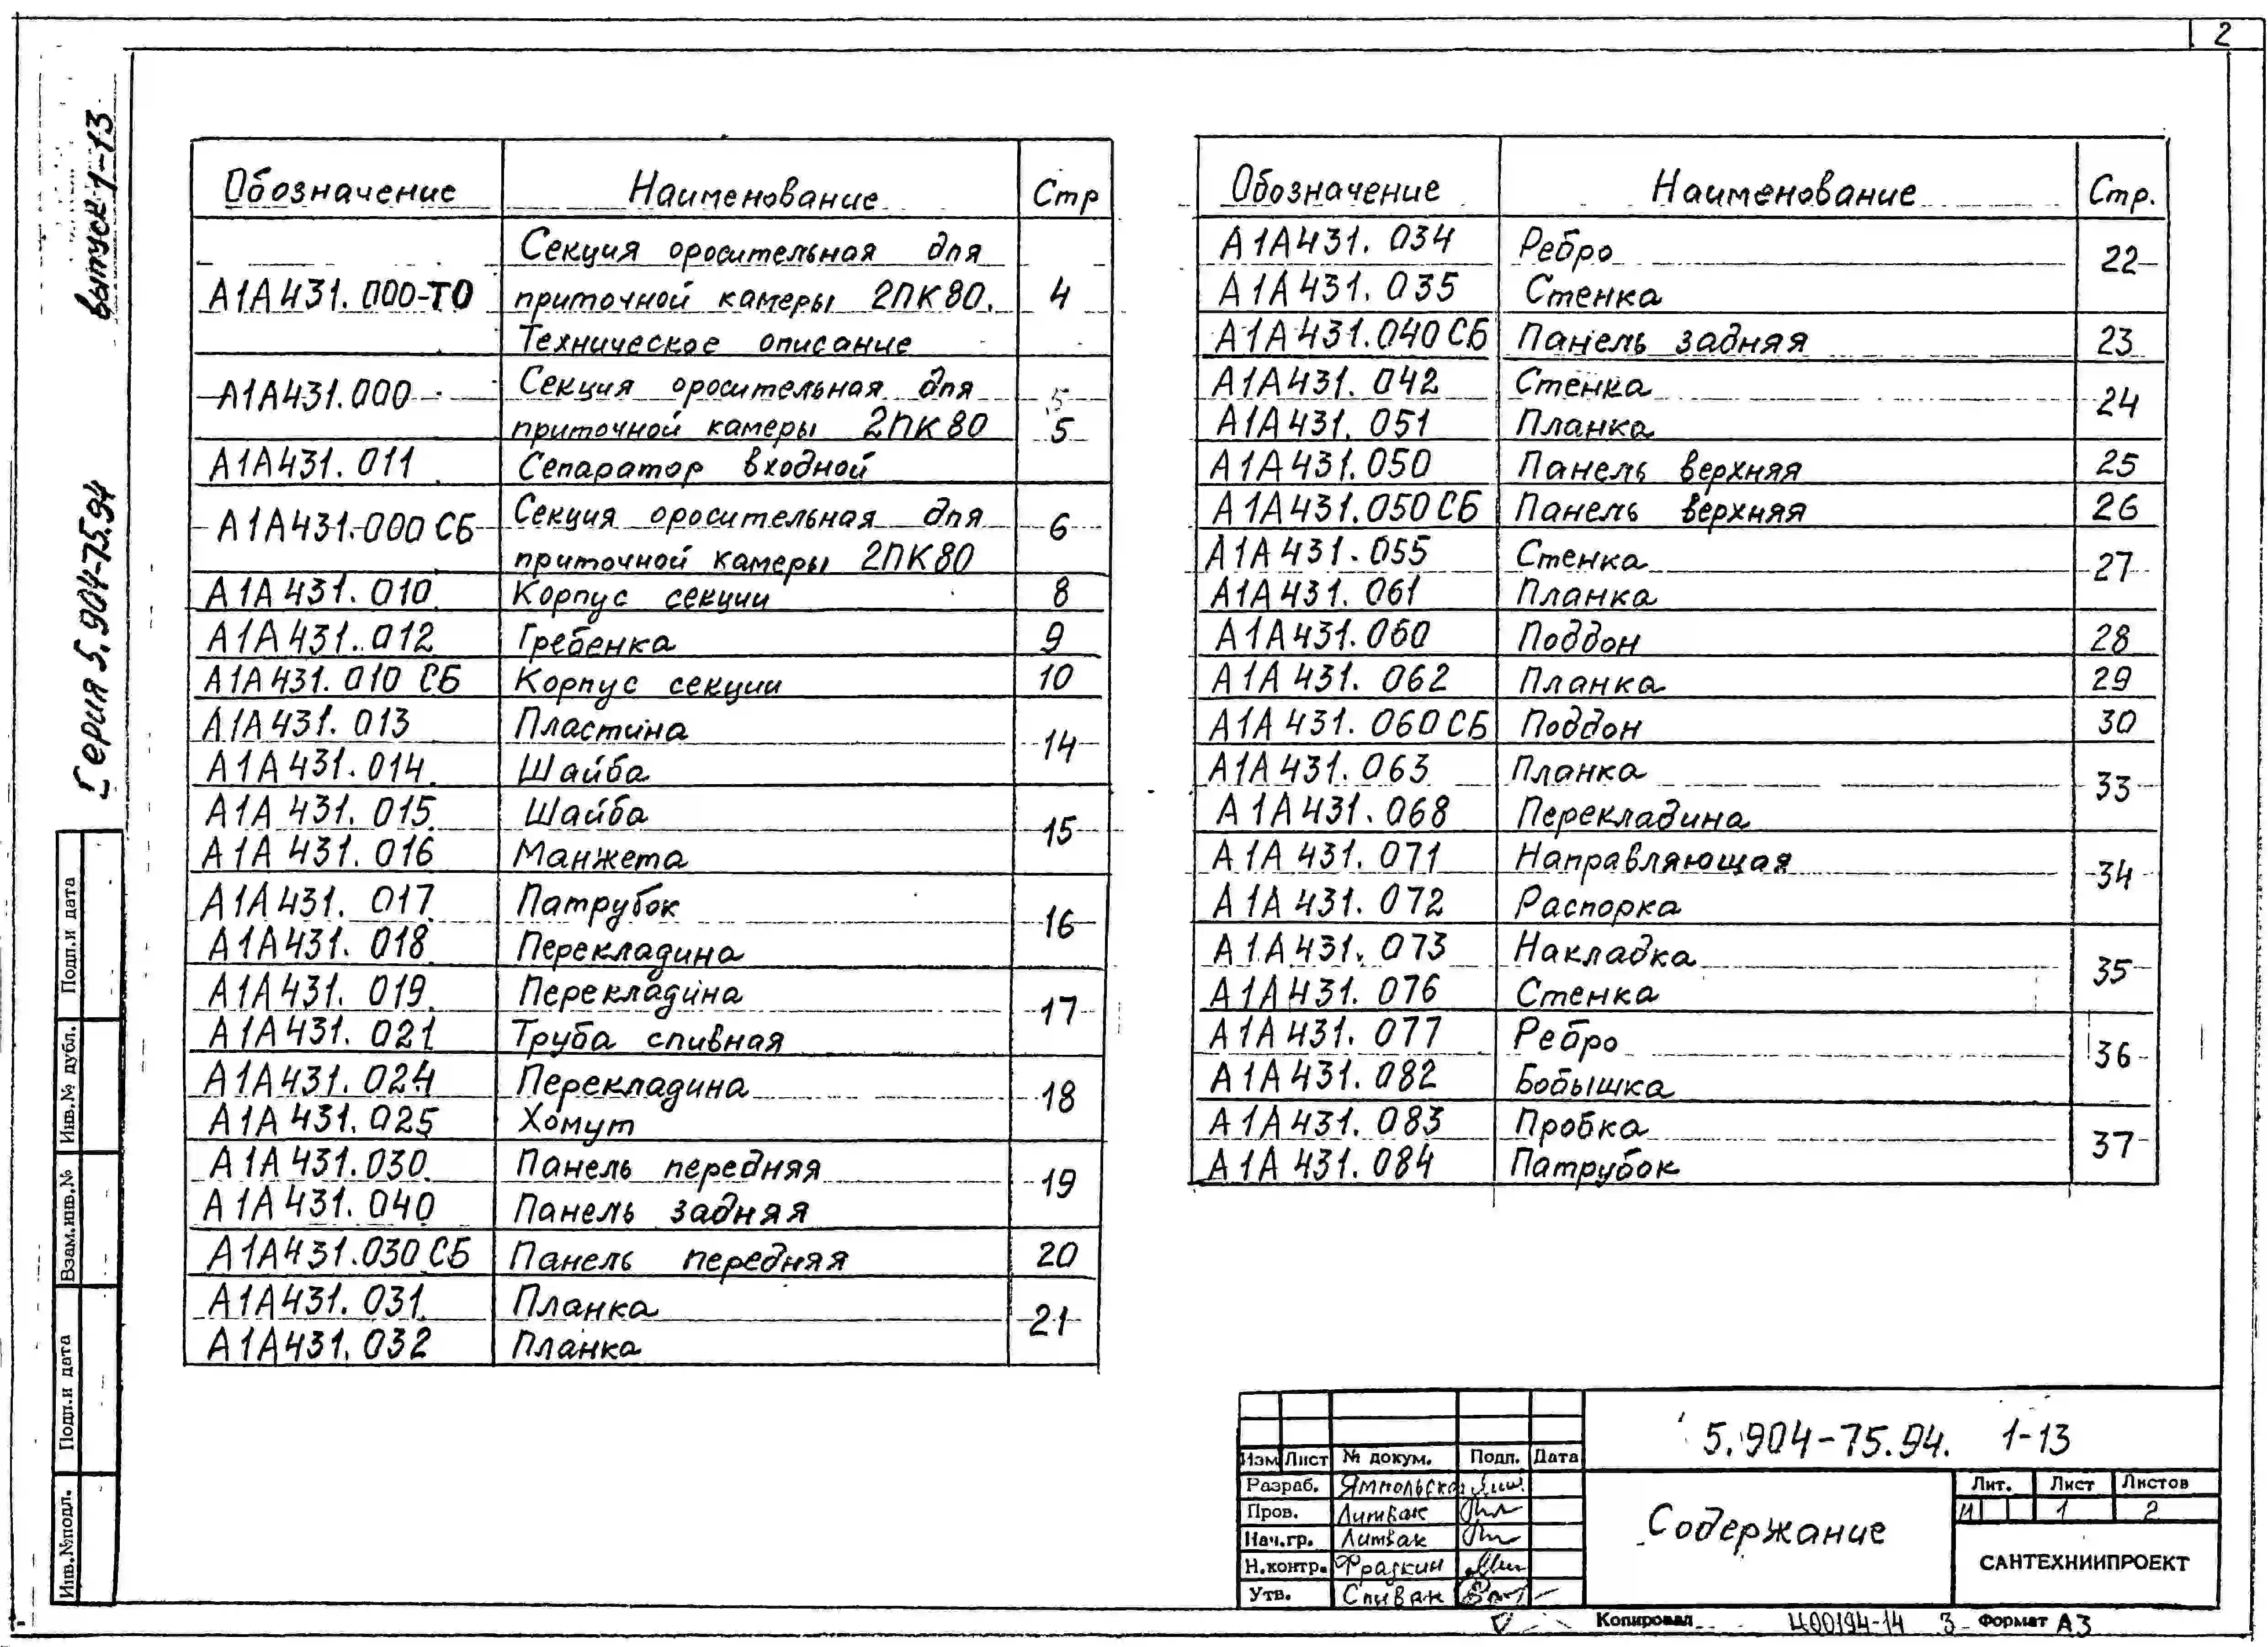 2
выпуск 1-13
Серия 5.904-75.94
Обозначение Наименование Стр
Секция оросительная для
А1А431.000-ТО приточной камеры 2ПК80. 4
Техническое описание
А1А431.000 Секция оросительная для 5
приточной камеры 2ПК80 5
А1А431.011 Сепаратор входной
А1А431.000 СБ Секция оросительная для 6
приточной камеры 2ПК80
А1А431.010 Корпус секции 8
А1А431.012 Гребенка 9
А1А431.010 СБ Корпус секции 10
А1А431.013 Пластина 14
А1А431.014 Шайба
А1А431.015 Шайба 15
А1А431.016 Манжета
А1А431.017 Патрубок 16
А1А431.018 Перекладина
А1А431.019 Перекладина 17
А1А431.021 Труба сливная
А1А431.024 Перекладина 18
А1А431.025 Хомут
А1А431.030 Панель передняя 19
А1А431.040 Панель задняя
А1А431.030 СБ Панель передняя 20
А1А431.031 Планка 21
А1А431.032 Планка
Обозначение Наименование Стр.
А1А431.034 Ребро 22
А1А431.035 Стенка
А1А431.040 СБ Панель задняя 23
А1А431.042 Стенка 24
А1А431.051 Планка
А1А431.050 Панель верхняя 25
А1А431.050 СБ Панель верхняя 26
А1А431.055 Стенка 27
А1А431.061 Планка
А1А431.060 Поддон 28
А1А431.062 Планка 29
А1А431.060 СБ Поддон 30
А1А431.063 Планка 33
А1А431.068 Перекладина
А1А431.071 Направляющая 34
А1А431.072 Распорка
А1А431.073 Накладка 35
А1А431.076 Стенка
А1А431.077 Ребро 36
А1А431.082 Бобышка
А1А431.083 Пробка 37
А1А431.084 Патрубок
Подп.и дата
Инв.№ дубл.
Взам.инв.№
Подп.и дата
Инв.№подл.
5.904-75.94. 1-13
Изм Лист № докум. Подп. Дата
Разраб. Ямпольская
Пров. Литвак
Нач.гр. Литвак
Н.контр. Фрадкин
Утв. Спивак
Содержание
Лит. Лист Листов
И 1 2
САНТЕХНИИПРОЕКТ
Копировал Ц00194-14 3 Формат А3